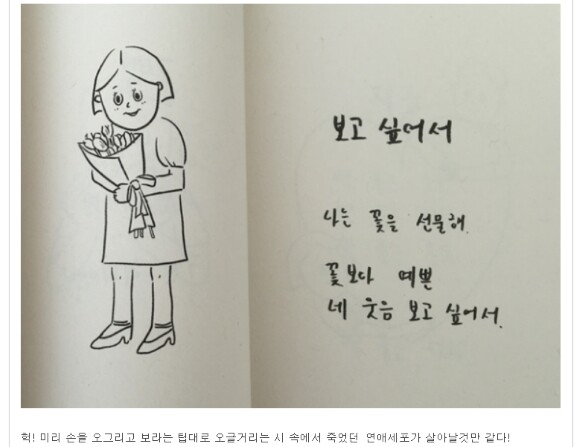 보고 싶어서
나는 꽃을 선물해.
꽃보다 예쁜
네 웃음 보고 싶어서.
헉! 미리 손을 오그리고 보라는 팁대로 오글거리는 시 속에서 죽었던 연애세포가 살아날것만 같다!